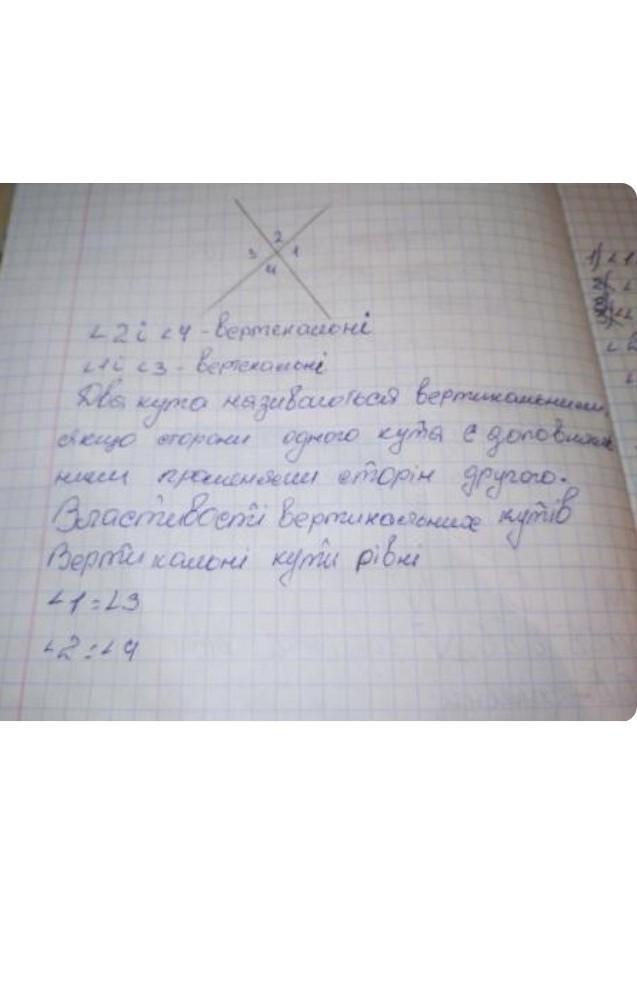 2
3 1
4
∠2 і ∠4 - вертекальні
∠1 і ∠3 - вертекальні
Два кута називаються вертикальними,
якщо сторони одного кута є доповняль
ними променями сторін другого.
Властивості вертикальних кутів
Вертикальні кути рівні
∠1=∠3
∠2=∠4
1) ∠1